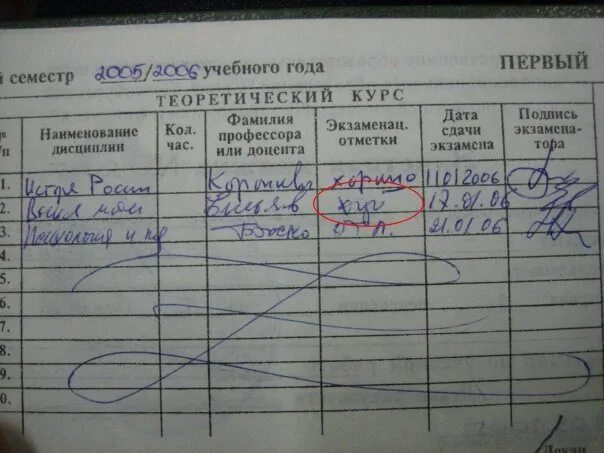 й семестр 2005/2006 учебного года ПЕРВЫЙ
ТЕОРЕТИЧЕСКИЙ КУРС
№ п/п Наименование дисциплин Кол. час. Фамилия профессора или доцента Экзаменац. отметки Дата сдачи экзамена Подпись экзамена-тора
1. История России хорошо 11012006
2. 17.01.06
3. Психология и пед Боско отл. 21.01.06
4.
5.
6.
7.
8.
9.
0.
Декан